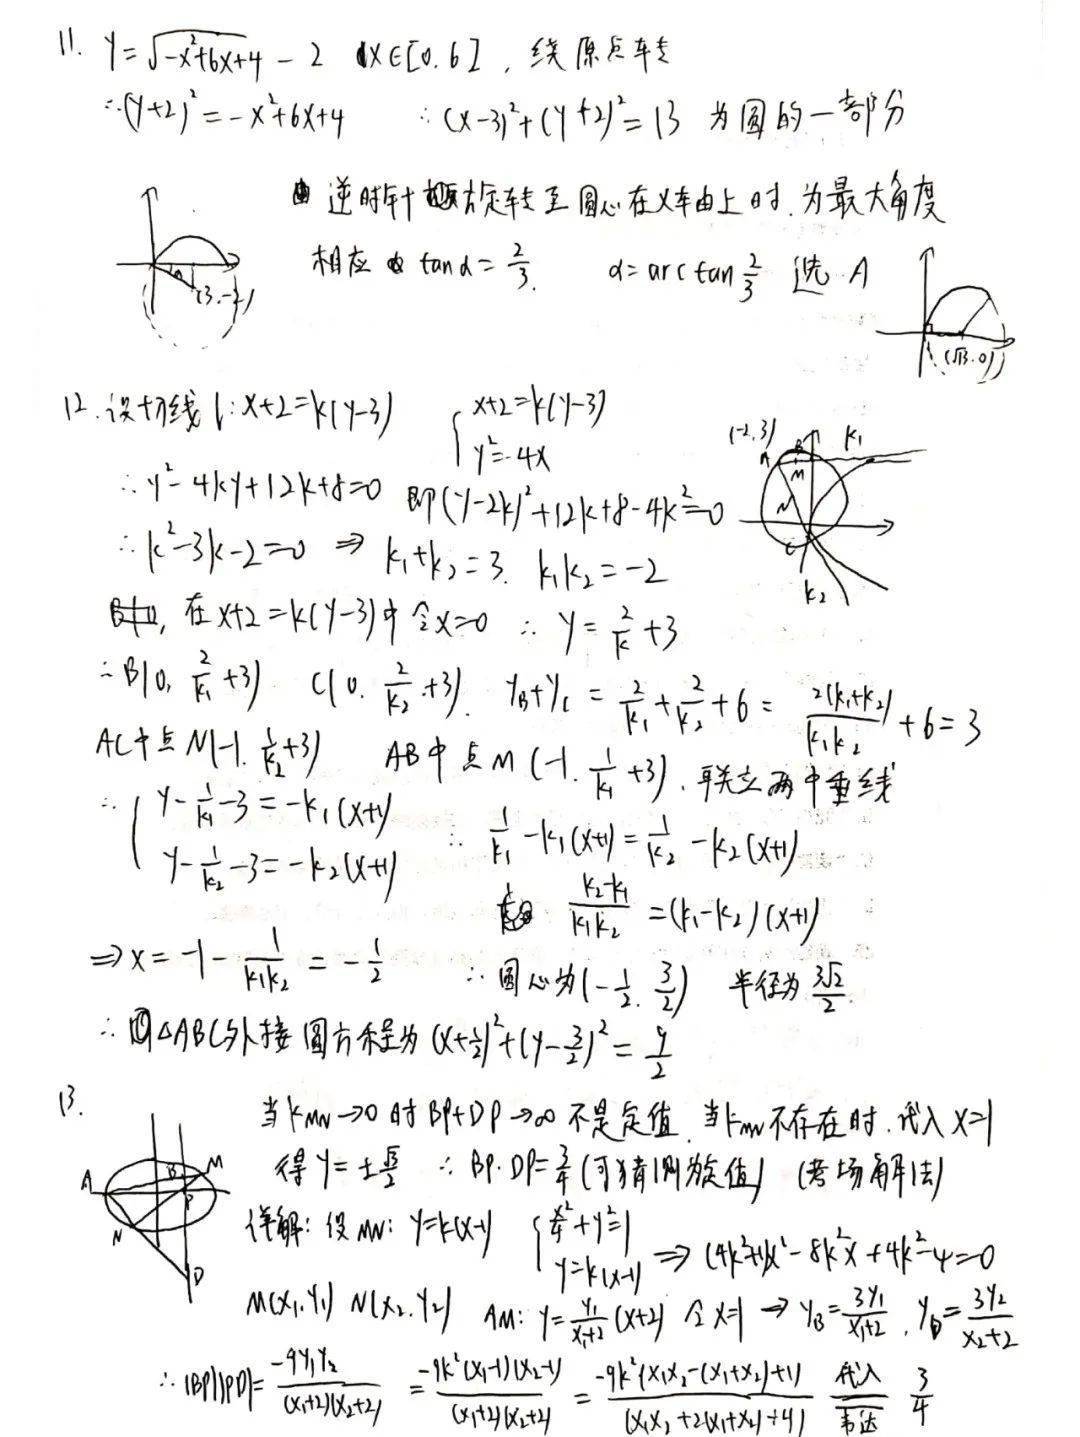 11. y=√(-x²+6x+4) - 2 x∈[0,6], 绕原点转
∴(y+2)²=-x²+6x+4 ∴(x-3)²+(y+2)²=13 为圆的一部分
逆时针旋转至圆心在x轴上时,为最大角度
相应 tanα=2/3. α=arctan 2/3 选 A
(3,-2)
(√13,0)
12.设切线 l: x+2=k(y-3) { x+2=k(y-3)
y²=4x
(-2,3) A B M N C k₁ k₂
∴y²-4ky+12k+8=0 即(y-2k)²+12k+8-4k²=0
∴k²-3k-2=0 ⇒ k₁+k₂=3. k₁k₂=-2
在x+2=k(y-3)中令x=0 ∴ y=2/k+3
∴B(0, 2/k₁+3) C(0, 2/k₂+3). y_B+y_C=2/k₁+2/k₂+6=2(k₁+k₂)/k₁k₂+6=3
AC中点N(-1, 1/k₂+3) AB中点M(-1, 1/k₁+3),联立两中垂线
∴ { y-1/k₁-3=-k₁(x+1) ∴ 1/k₁-k₁(x+1)=1/k₂-k₂(x+1)
y-1/k₂-3=-k₂(x+1)
(k₂-k₁)/k₁k₂=(k₁-k₂)(x+1)
⇒x=-1-1/k₁k₂=-1/2 ∴圆心为(-1/2, 3/2) 半径为3√2/2
∴△ABC外接圆方程为(x+1/2)²+(y-3/2)²=9/2
13.
当k_MN→0时BP+DP→∞不是定值.当k_MN不存在时.代入x=1
得y=±√3/2 ∴BP·DP=3/4(可猜测为定值)(考场解法)
A B M P N D
详解:设MN: y=k(x-1) { x²/4+y²=1
y=k(x-1) ⇒(4k²+1)x²-8k²x+4k²-4=0
M(x₁,y₁) N(x₂,y₂) AM: y=y₁/(x₁+2)(x+2) 令x=1 ⇒y_B=3y₁/(x₁+2), y_D=3y₂/(x₂+2)
∴|BP||PD|=-9y₁y₂/(x₁+2)(x₂+2)=-9k²(x₁-1)(x₂-1)/(x₁+2)(x₂+2)=-9k²(x₁x₂-(x₁+x₂)+1)/(x₁x₂+2(x₁+x₂)+4) 代入韦达 3/4